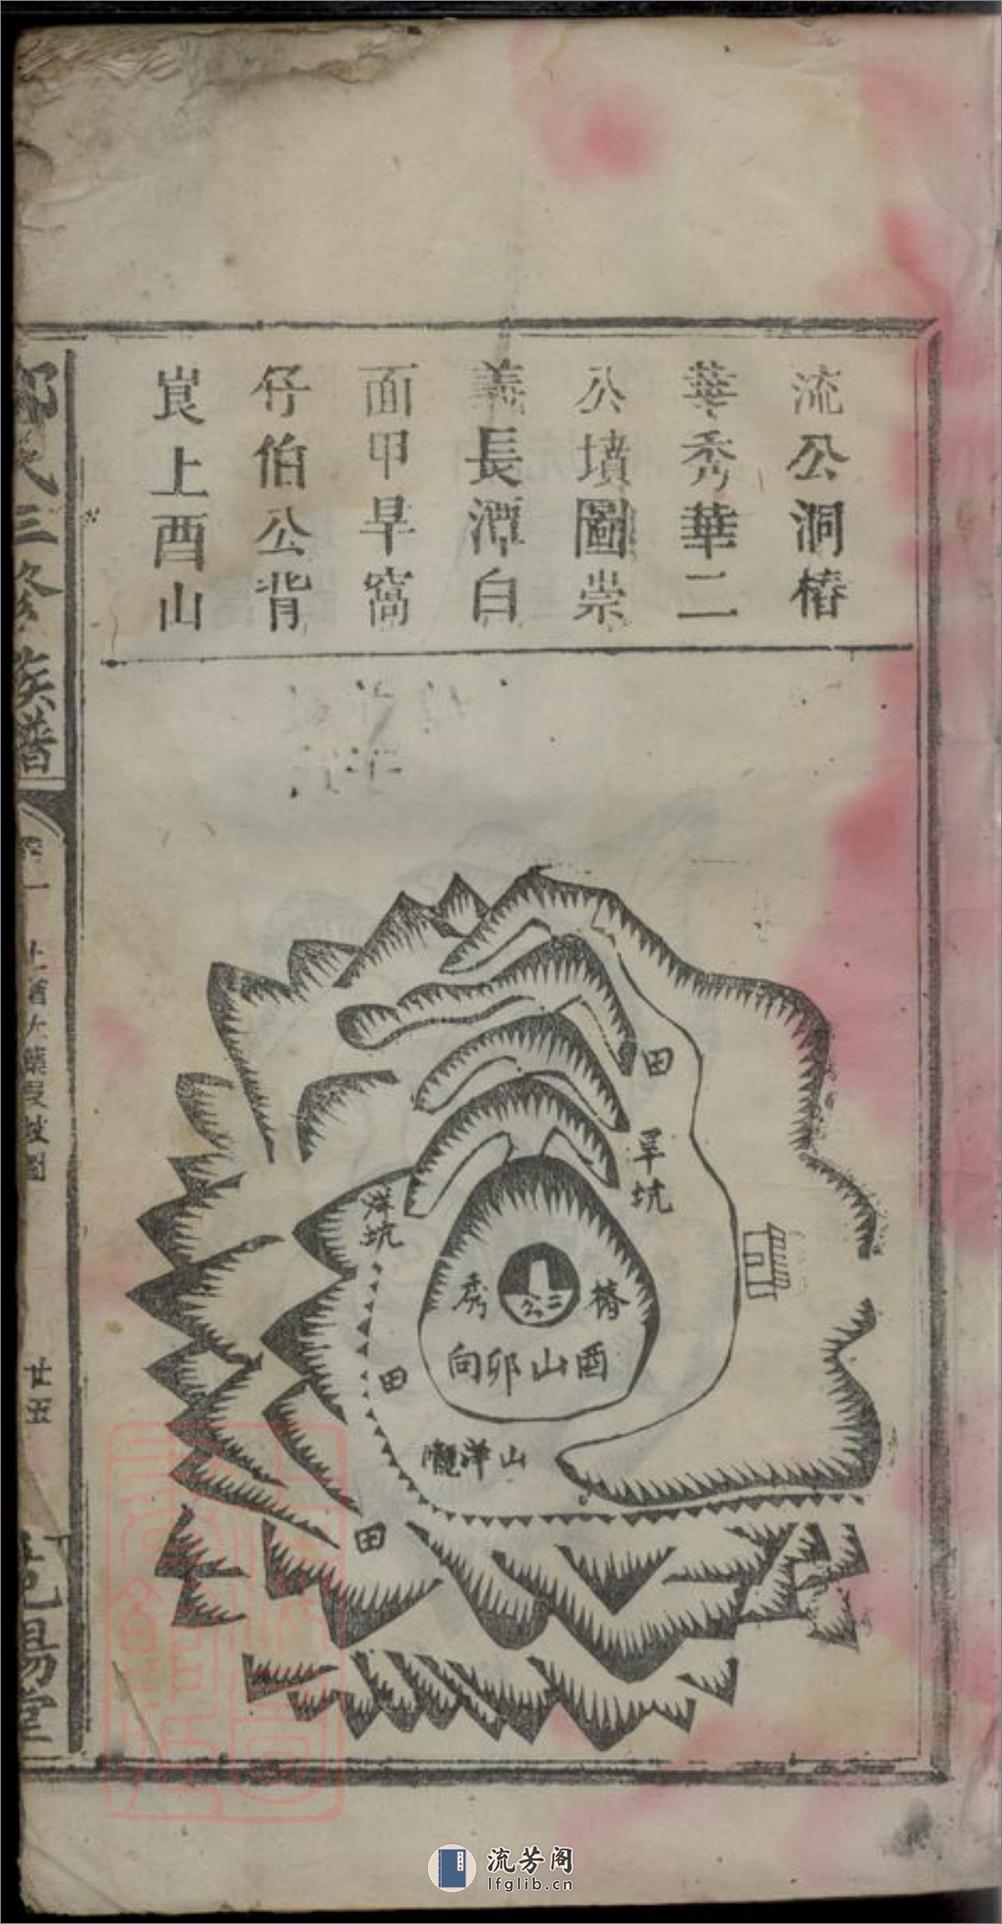 流公洞椿
華秀華二
公墳圖崇
義長潭白
面甲旱窩
仔伯公背
崀上酉山
氏三修族譜
卷一
廿五
堂
田
旱坑
洋坑
椿
二公
秀
酉山卯向
田
山洋隴
田
流芳阁
lfglib.cn